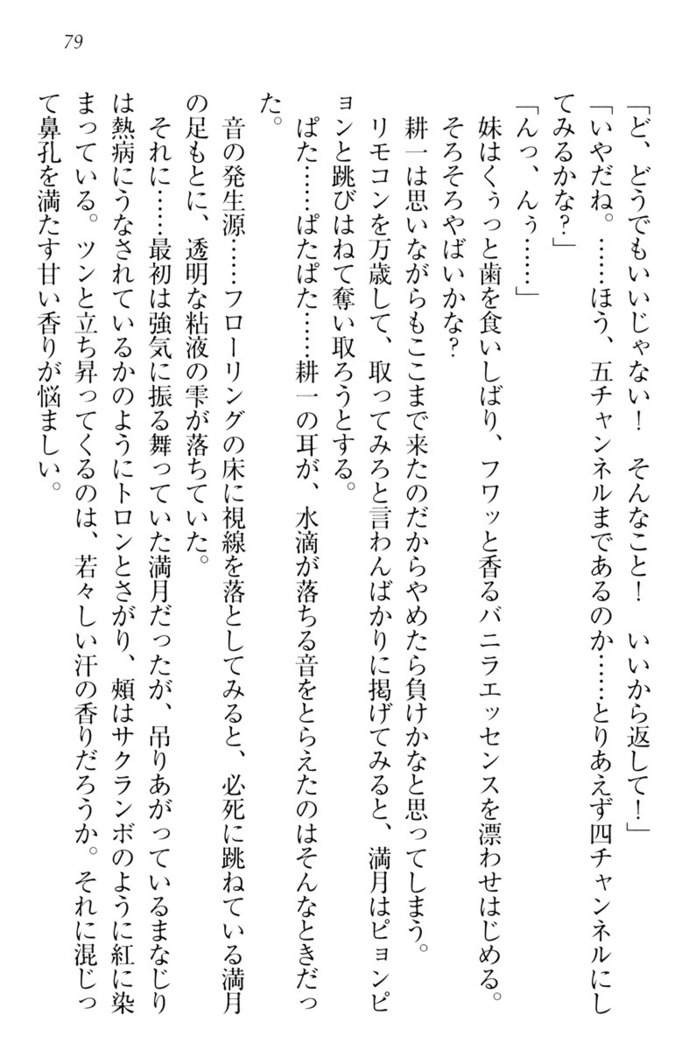 79
「ど、どうでもいいじゃない！　そんなこと！　いいから返して！」
「いやだね。……ほう、五チャンネルまであるのか……とりあえず四チャンネルにし
てみるかな？」
「んっ、んぅ……」
妹はくぅっと歯を食いしばり、フワッと香るバニラエッセンスを漂わせはじめる。
そろそろやばいかな？
耕一は思いながらもここまで来たのだからやめたら負けかなと思ってしまう。
リモコンを万歳して、取ってみろと言わんばかりに掲げてみると、満月はピョンピ
ョンと跳びはねて奪い取ろうとする。
ぱた……ぱたぱた……耕一の耳が、水滴が落ちる音をとらえたのはそんなときだっ
た。
音の発生源……フローリングの床に視線を落としてみると、必死に跳ねている満月
の足もとに、透明な粘液の雫が落ちていた。
それに……最初は強気に振る舞っていた満月だったが、吊りあがっているまなじり
は熱病にうなされているかのようにトロンとさがり、頬はサクランボのように紅に染
まっている。ツンと立ち昇ってくるのは、若々しい汗の香りだろうか。それに混じっ
て鼻孔を満たす甘い香りが悩ましい。